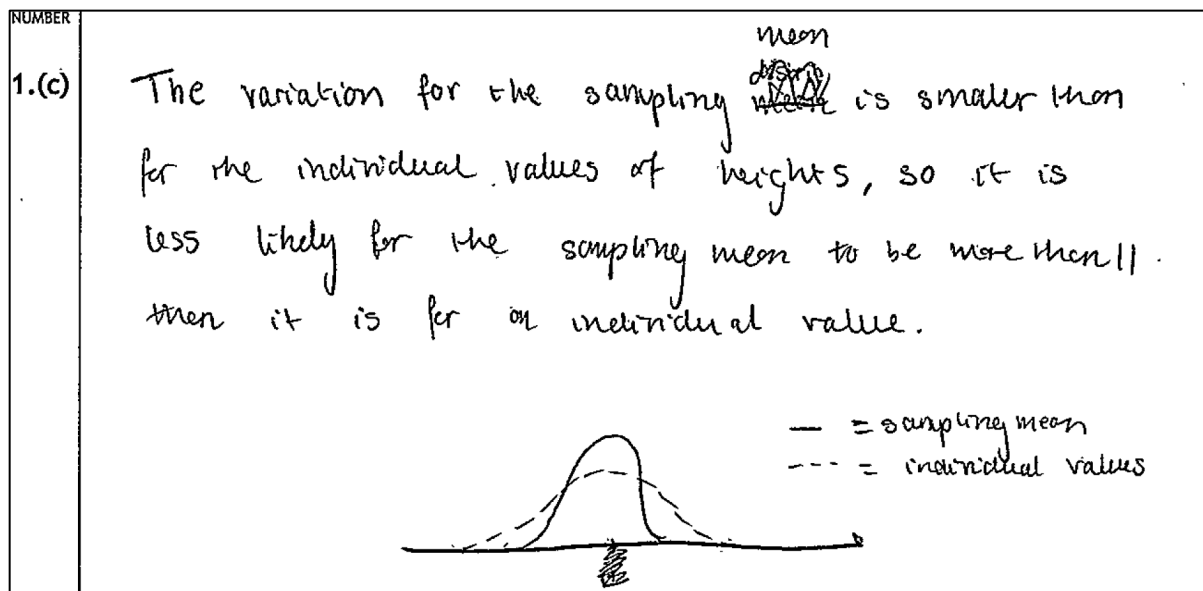 NUMBER
mean
1.(c) The variation for the sampling is smaller than
for the individual values of heights, so it is
less likely for the sampling mean to be more than 11
then it is for an individual value.
— = sampling mean
--- = individual values